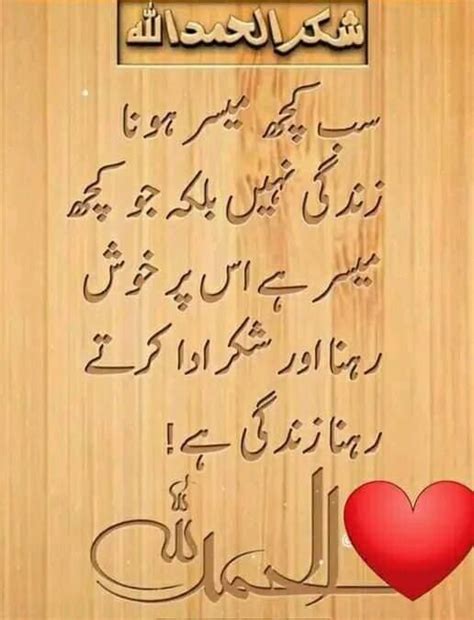 شکر الحمدللہ
سب کچھ میسر ہونا
زندگی نہیں بلکہ جو کچھ
میسر ہے اس پر خوش
رہنا اور شکر ادا کرتے
رہنا زندگی ہے!
الحمدللہ